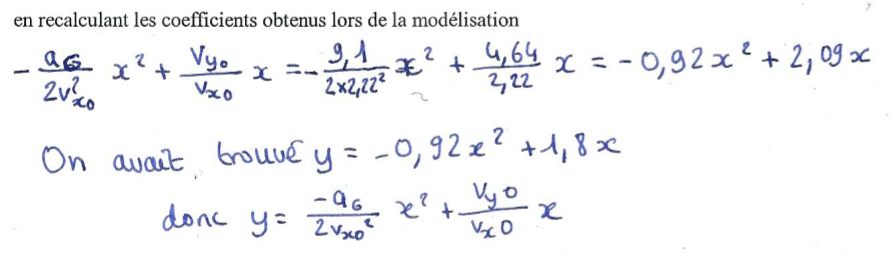 en recalculant les coefficients obtenus lors de la modélisation
- a_G / 2v_{x0}² x² + V_{y0} / V_{x0} x = - 9,1 / 2×2,22² x² + 4,64 / 2,22 x = - 0,92 x² + 2,09 x
On avait trouvé y = -0,92 x² + 1,8 x
donc y = -a_G / 2v_{x0}² x² + V_{y0} / V_{x0} x